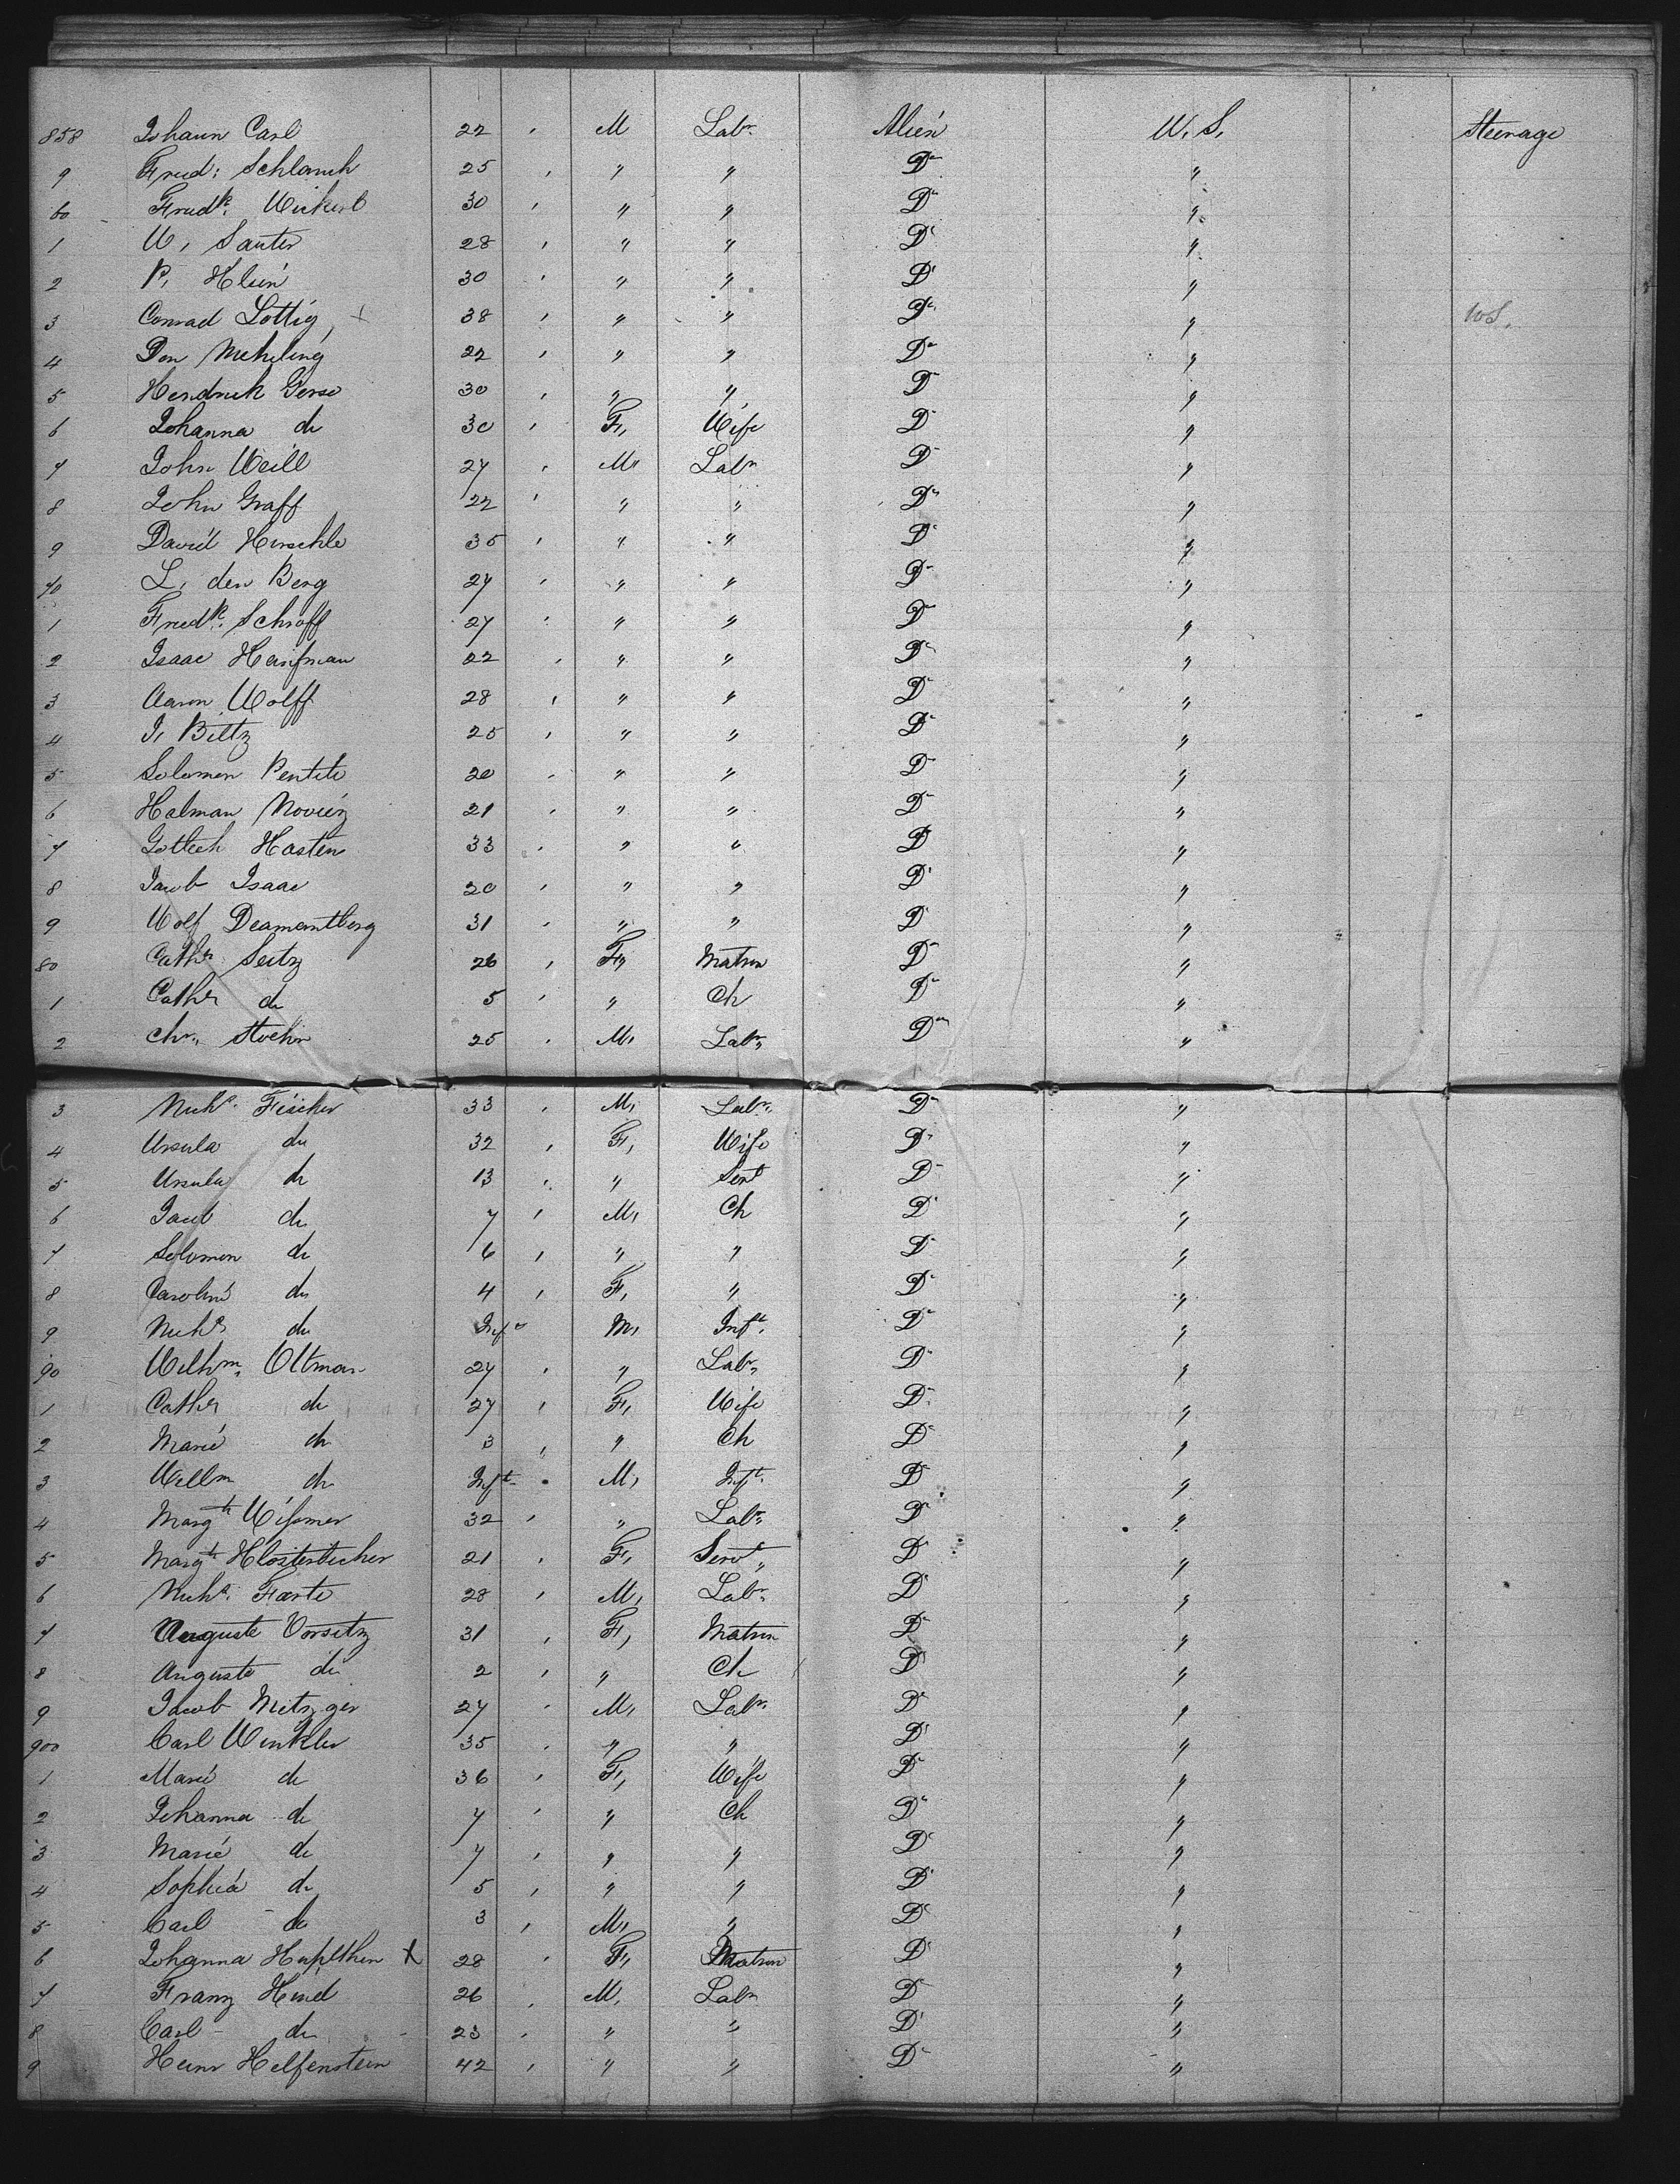 858 Johann Carl 22 , M Labr. Alien U. S. Steerage
9 Fred: Schlauch 25 , " " Do "
60 Fredk. Wickert 30 , " " Do "
1 W, Sauter 28 , " " Do "
2 P, Klein 30 , " " Do "
3 Conrad Lottig, + 38 , " " Do " 10S.
4 Don Mehling 22 , " " Do "
5 Hendrick Gerse 30 , " " Do "
6 Johanna do 30 , F, Wife Do "
7 John Weill 27 , M, Labr Do "
8 John Graff 22 , " " Do "
9 David Hirschle 35 , " " Do "
70 L, den Berg 27 , " " Do "
1 Fredk. Schroff 27 , " " Do "
2 Isaac Haufman 22 , " " Do "
3 Aaron Wolff 28 , " " Do "
4 J, Biltz 25 , " " Do "
5 Solomon Pentito 20 , " " Do "
6 Halman Noviez 21 , " " Do "
7 Gottech Hasten 33 , " " Do "
8 Jacob Isaac 20 , " " Do "
9 Wolf Deamantberg 31 , " " Do "
80 Cathr Seitz 26 , F, Matron Do "
1 Cathr do 5 , " Ch Do "
2 Chr., Stochr 25 , M, Labr, Do "
3 Nichs. Fischer 33 , M, Labr, Do "
4 Ursula do 32 , F, Wife Do "
5 Ursula do 13 , " Servt Do "
6 Jacob do 7 , M, Ch Do "
7 Solomon do 6 , " " Do "
8 Caroline do 4 , F, " Do "
9 Nichs do Inft M, Inft. Do "
90 Wilhm. Oltman 27 , " Labr, Do "
1 Cathr do 27 , F, Wife Do "
2 Marie do 3 , " Ch Do "
3 Willm do Inft M, Inft. Do "
4 Margt Wissmer 32 , " Labr, Do "
5 Margt Klosterbecher 21 , F, Servt, Do "
6 Nichs. Farte 28 , M, Labr, Do "
7 Auguste Vorsitz 31 , F, Matron Do "
8 Auguste do 2 , " Ch Do "
9 Jacob Metzger 27 , M, Labr. Do "
900 Carl Winkler 35 , " " Do "
1 Marie do 36 , F, Wife Do "
2 Johanna do 7 , " Ch Do "
3 Marie do 7 , " " Do "
4 Sophia do 5 , " " Do "
5 Carl do 3 , M, " Do "
6 Johanna + 28 , F, Matron Do "
7 Franz Hend 26 , M, Labr Do "
8 Carl do 23 , " " Do "
9 Heinr Helfenstein 42 , " " Do "